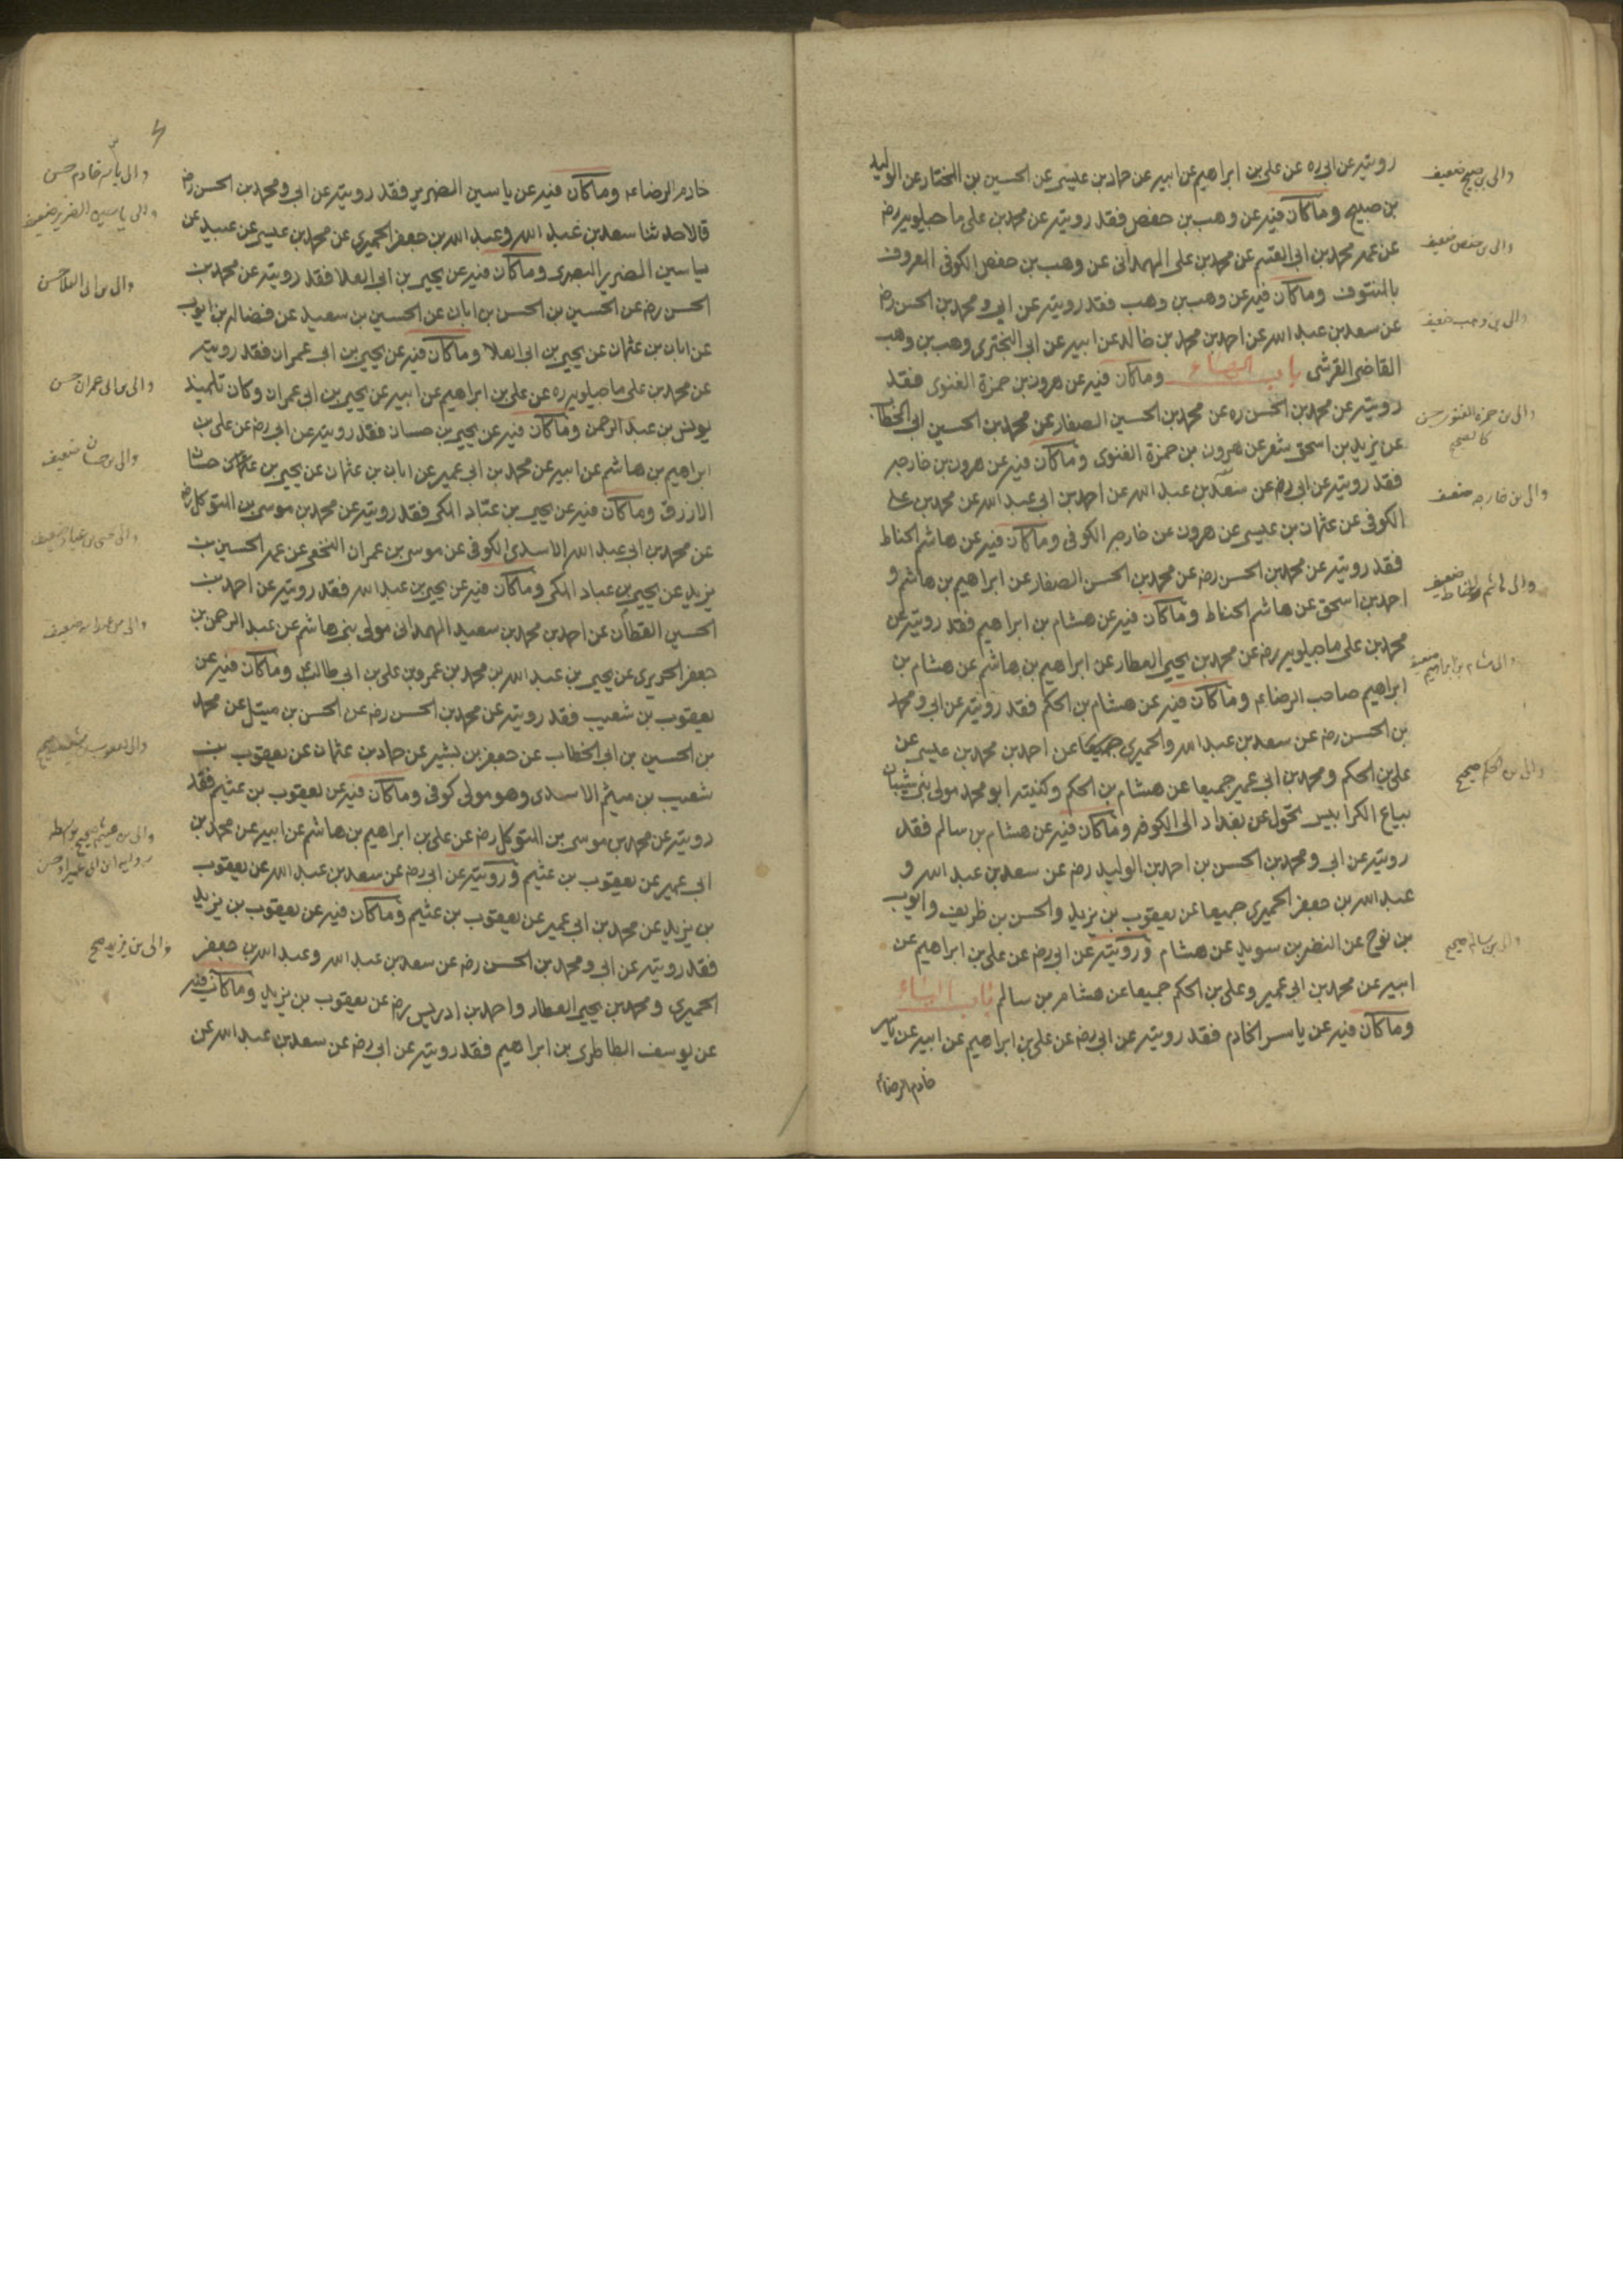 رويته عن ابي ره عن علي بن ابراهيم عن ابيه عن حماد بن عيسى عن الحسين بن المختار عن الوليد
بن صبيح وما كان فيه عن وهب بن حفص فقد رويته عن محمد بن علي ماجيلويه رض
عن عمه محمد بن ابي القسم عن محمد بن علي الهمداني عن وهب بن حفص الكوفي المعروف
بالمنتوف وما كان فيه عن وهب بن وهب فقد رويته عن ابي و محمد بن الحسن رض
عن سعد بن عبد الله عن احمد بن محمد بن خالد عن ابيه عن ابي البختري وهب بن وهب
القاضي القرشي باب الهاء وما كان فيه عن هرون بن حمزة الغنوي فقد
رويته عن محمد بن الحسن ره عن محمد بن الحسين الصفار عن محمد بن الحسين ابي الخطاب
عن يزيد بن اسحق شعر عن هرون بن حمزة الغنوي وما كان فيه عن هرون بن خارجه
فقد رويته عن ابي رض عن سعد بن عبد الله عن احمد بن ابي عبد الله عن محمد بن علي
الكوفي عن عثمان بن عيسى عن هرون عن خارجه الكوفي وما كان فيه عن هاشم الحناط
فقد رويته عن محمد بن الحسن رض عن محمد بن الحسن الصفار عن ابراهيم بن هاشم و
احمد بن اسحق عن هاشم الحناط وما كان فيه عن هشام بن ابراهيم فقد رويته عن
محمد بن علي ماجيلويه رض عن محمد بن يحيى العطار عن ابراهيم بن هاشم عن هشام بن
ابراهيم صاحب الرضاء وما كان فيه عن هشام بن الحكم فقد رويته عن ابي و محمد
بن الحسن رض عن سعد بن عبد الله والحميري جميعا عن احمد بن محمد بن عيسى عن
علي بن الحكم ومحمد بن ابي عمير جميعا عن هشام بن الحكم وكنيته ابو محمد مولى بني شيبان
بياع الكرابيس تحول عن بغداد الى الكوفه وما كان فيه عن هشام بن سالم فقد
رويته عن ابي و محمد بن الحسن بن احمد بن الوليد رض عن سعد بن عبد الله و
عبد الله بن جعفر الحميري جميعا عن يعقوب بن يزيد والحسن بن ظريف وايوب
بن نوح عن النضر بن سويد عن هشام ورويته عن ابي رض عن علي بن ابراهيم عن
ابيه عن محمد بن ابي عمير وعلي بن الحكم جميعا عن هشام بن سالم باب الياء
وما كان فيه عن ياسر الخادم فقد رويته عن ابي رض عن علي بن ابراهيم عن ابيه عن ياسر
خادم الرضاء
والى بن صبيح ضعيف
والى بن حفص ضعيف
والى بن وهب ضعيف
والى بن حمزه الغنوي حسن
كالصحيح
والى بن خارجه ضعيف
والى هاشم الحناط ضعيف
والى هشام بن ابراهيم ضعيف
والى بن الحكم صحيح
والى بن سالم صحيح
خادم الرضاء وما كان فيه عن ياسين الضرير فقد رويته عن ابي و محمد بن الحسن رض
قالا حدثنا سعد بن عبد الله وعبد الله بن جعفر الحميري عن محمد بن عيسى عن عبيد عن
ياسين الضرير البصري وما كان فيه عن يحيى بن ابي العلا فقد رويته عن محمد بن
الحسن رض عن الحسين بن الحسن بن ابان عن الحسين بن سعيد عن فضاله بن ايوب
عن ابان بن عثمان عن يحيى بن ابي العلا وما كان فيه عن يحيى بن ابي عمران فقد رويته
عن محمد بن علي ماجيلويه ره عن علي بن ابراهيم عن ابيه عن يحيى بن ابي عمران وكان تلميذ
يونس بن عبد الرحمن وما كان فيه عن يحيى بن حسان فقد رويته عن ابي رض عن علي بن
ابراهيم بن هاشم عن ابيه عن محمد بن ابي عمير عن ابان بن عثمان عن يحيى بن حسان
الازرق وما كان فيه عن يحيى بن عباد المكي فقد رويته عن محمد بن موسى بن المتوكل رض
عن محمد بن ابي عبد الله الاسدي الكوفي عن موسى بن عمران النخعي عن عمه الحسين بن
يزيد عن يحيى بن عباد المكي وما كان فيه عن يحيى بن عبد الله فقد رويته عن احمد بن
الحسين القطان عن احمد بن محمد بن سعيد الهمداني مولى بني هاشم عن عبد الرحمن بن
جعفر الحريري عن يحيى بن عبد الله بن محمد بن عمرو بن علي بن ابي طالب وما كان فيه عن
يعقوب بن شعيب فقد رويته عن محمد بن الحسن رض عن الحسن بن متيل عن محمد
بن الحسين بن ابي الخطاب عن جعفر بن بشير عن حماد بن عثمان عن يعقوب بن
شعيب بن ميثم الاسدي وهو مولى كوفي وما كان فيه عن يعقوب بن عثيم فقد
رويته عن محمد بن موسى بن المتوكل رض عن علي بن ابراهيم بن هاشم عن ابيه عن محمد بن
ابي عمير عن يعقوب بن عثيم ورويته عن ابي رض عن سعد بن عبد الله عن يعقوب
بن يزيد عن محمد بن ابي عمير عن يعقوب بن عثيم وما كان فيه عن يعقوب بن يزيد
فقد رويته عن ابي و محمد بن الحسن رض عن سعد بن عبد الله وعبد الله بن جعفر
الحميري ومحمد بن يحيى العطار واحمد بن ادريس رض عن يعقوب بن يزيد وما كان فيه
عن يوسف الطاطري بن ابراهيم فقد رويته عن ابي رض عن سعد بن عبد الله عن
والى ياسر خادم حسن
والى ياسين الضرير ضعيف
والى بن ابي العلا حسن
والى بن ابي عمران حسن
والى بن حسان ضعيف
والى يحيى بن عباد ضعيف
والى بن عبد الله ضعيف
والى يعقوب بن شعيب صحيح
والى بن يزيد صحيح